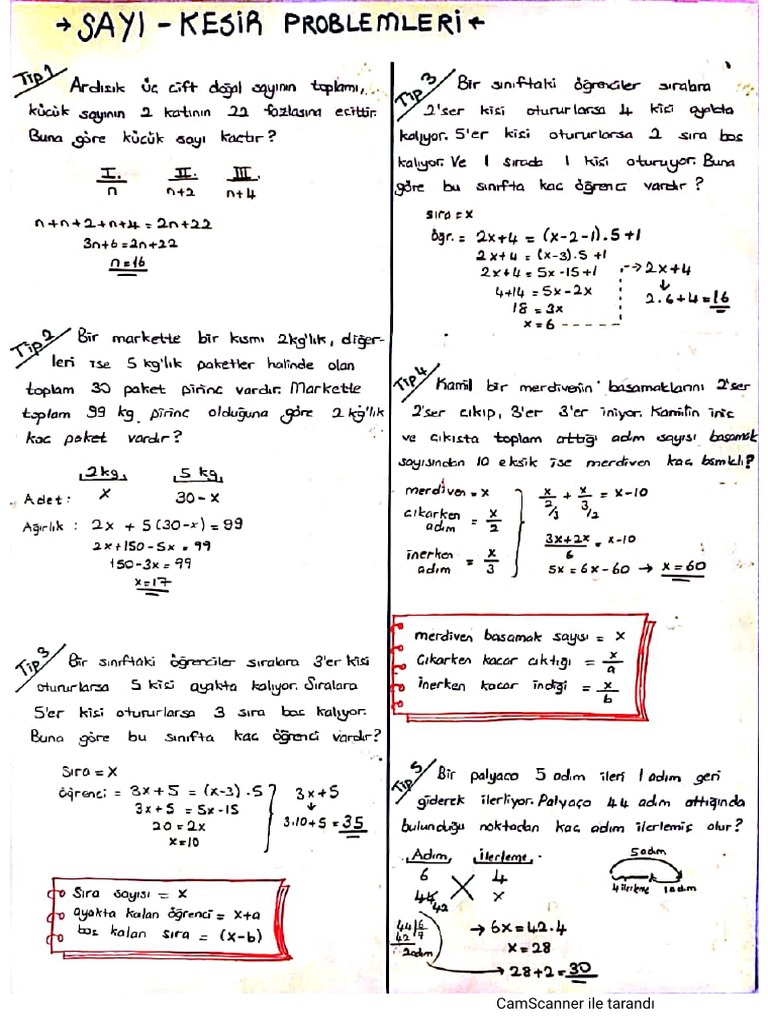 → SAYI - KESİR PROBLEMLERİ ←
Tip 1 Ardışık üç çift doğal sayının toplamı,
küçük sayının 2 katının 22 fazlasına eşittir.
Buna göre küçük sayı kaçtır?
I. II. III.
n n+2 n+4
n+n+2+n+4=2n+22
3n+6=2n+22
n=16
Tip 2 Bir markette bir kısmı 2kg'lık, diğer-
leri ise 5 kg'lık paketler halinde olan
toplam 30 paket pirinç vardır. Markette
toplam 99 kg pirinç olduğuna göre 2 kg'lık
kaç paket vardır?
2kg 5 kg
Adet: x 30-x
Ağırlık: 2x + 5(30-x)=99
2x+150-5x=99
150-3x=99
x=17
Tip 3 Bir sınıftaki öğrenciler sıralara 3'er kişi
otururlarsa 5 kişi ayakta kalıyor. Sıralara
5'er kişi otururlarsa 3 sıra boş kalıyor.
Buna göre bu sınıfta kaç öğrenci vardır?
Sıra = x
öğrenci = 3x+5 = (x-3).5
3x+5 = 5x-15
20=2x
x=10
3x+5
↓
3.10+5=35
Sıra sayısı = x
ayakta kalan öğrenci = x+a
boş kalan sıra = (x-b)
Tip 3 Bir sınıftaki öğrenciler sıralara
2'şer kişi otururlarsa 4 kişi ayakta
kalıyor. 5'er kişi otururlarsa 2 sıra boş
kalıyor. Ve 1 sırada 1 kişi oturuyor. Buna
göre bu sınıfta kaç öğrenci vardır?
sıra = x
öğr. = 2x+4 = (x-2-1).5+1
2x+4 = (x-3).5+1
2x+4 = 5x-15+1
4+14 = 5x-2x
18 = 3x
x = 6
→ 2x+4
↓
2.6+4=16
Tip 4 Kamil bir merdivenin basamaklarını 2'şer
2'şer çıkıp, 3'er 3'er iniyor. Kamilin iniş
ve çıkışta toplam attığı adım sayısı basamak
sayısından 10 eksik ise merdiven kaç bsmklı?
merdiven = x
çıkarken adım = x/2
inerken adım = x/3
x/2 + x/3 = x-10
/3 /2
3x+2x/6 = x-10
5x = 6x-60 → x=60
merdiven basamak sayısı = x
Çıkarken kaçar çıktığı = x/a
İnerken kaçar indiği = x/b
Tip 5 Bir palyaço 5 adım ileri 1 adım geri
giderek ilerliyor. Palyaço 44 adım attığında
bulunduğu noktadan kaç adım ilerlemiş olur?
Adım İlerleme
6 4
44 42 x
5 adım
4 ilerleme 1 adım
44 6
42 7
2 adım
→ 6x=42.4
x=28
→ 28+2=30
CamScanner ile tarandı